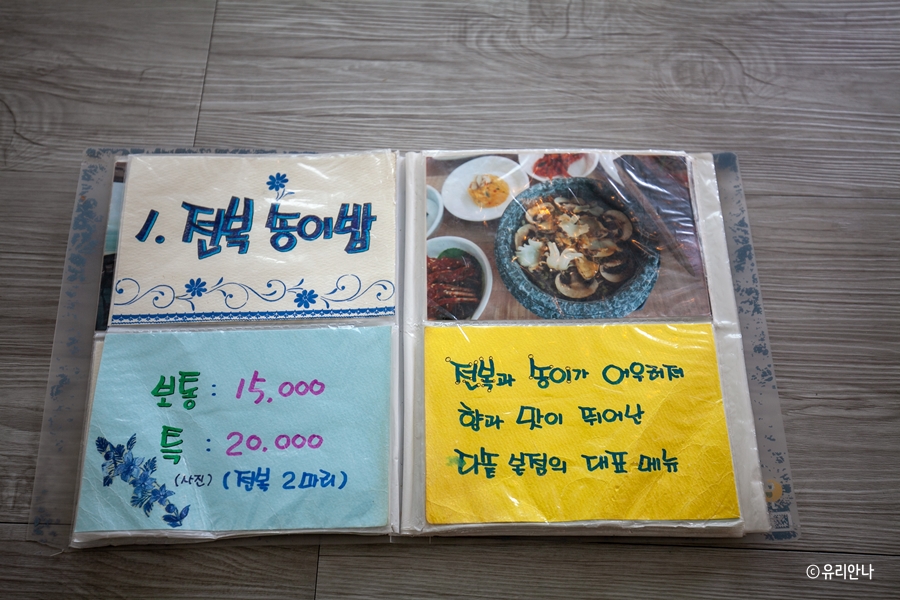 1. 전복 송이밥
보통 : 15,000
특 : 20,000
(사진) (전복 2마리)
전복과 송이가 어우러져
향과 맛이 뛰어난
대표 메뉴
ⓒ유리안나